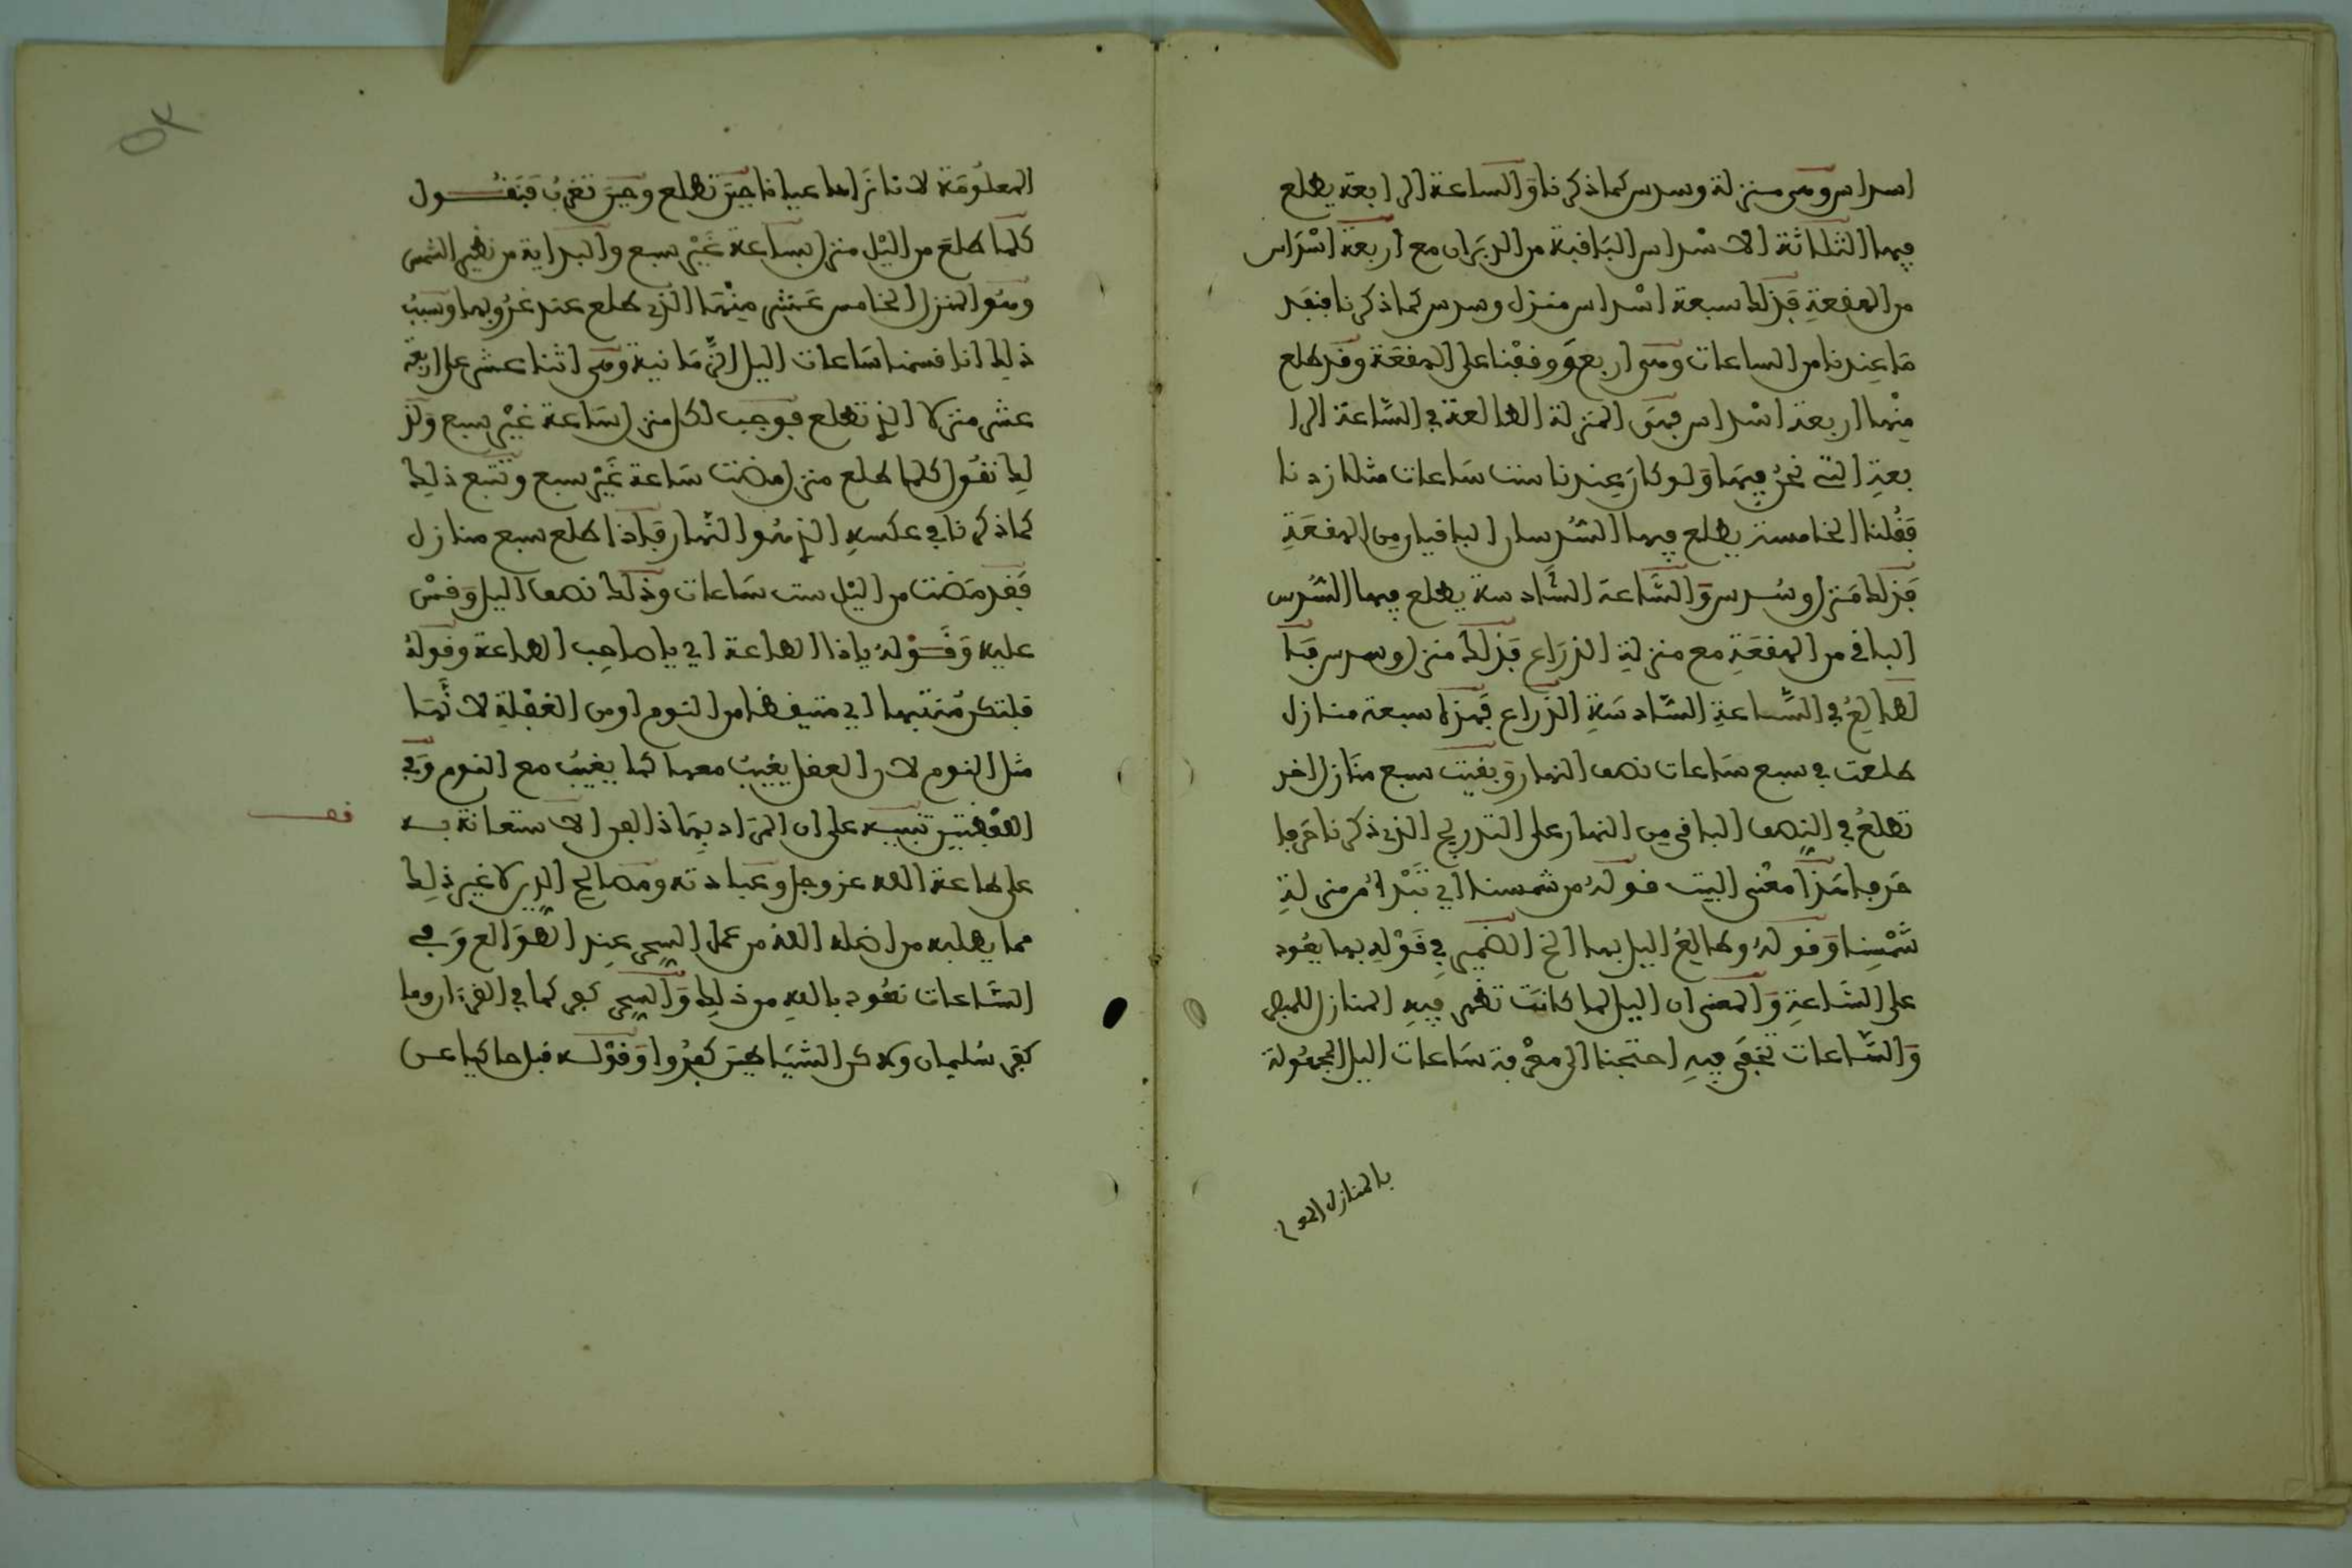 اسداس وهى منزلة وسدس كما ذكرنا وَالساعة الرابعة يطلع
فيها الثلاثة الاسْداس البَافية من الدبَران مع اربعة اسْدَاس
من الهفعةِ فَذلك سبعة اسْداس منزل وسدس كما ذكرنا فنفد
مَا عِندنا من الساعات وهى اربعَ وَوفقْنا على الهفعَة وقد طلع
مِنْها اربعة اسْداس فهىَ المنزلة الطالعة في السَّاعَة الرا
بعةِ التى نحنُ فيهَا وَلو كانَ عِندنا ست سَاعات مثلا زدنا
فَقُلنا الخامسة يطلع فيها السُّدسان الباقيان مِن الهفعَةِ
فَذلك مَنزل وسُدس وَالسَّاعة السَّادسة يطلع فيها السُّدس
الباقى من الهفعَةِ مع منزلةِ الذرَاع فَذلك منزل وسدس فَا
لطالِعُ في السَّاعةِ السَّادسَةِ الذّراع فَهذه سبعة منازل
طلعت في سبع سَاعات نصف النهار وَبقيت سبع منَازل اخر
تطلعُ في النِصف الباقى مِن النهار على التدريج الذى ذكرنا حَرفا
حَرفا هَذا معْنى البيت قولهُ من شمسنا اي تَبْدأُ من منزلةِ
شَمْسِنا وَقولهُ وطالِعُ اليل بها الخ الضّميرُ في قَوْلِه بها يعُود
على السَّاعةِ وَالمعنى ان اليل لما كانتَ تظهر فِيهِ المنازل للبصر
وَالسَّاعات تخفَى فيهِ احتجنا الى معْرفة سَاعات اليل المجهُولة
بالمنازل المعلو
المعلوُمَة لانا نَراها عيانا حِينَ تطلع وحِينَ تغربُ فَنَقُــول
كلما طلعَ من اليْل منزل بسَاعة غَيْر سبع وَالبداية من نظير الشمس
وهُو المنزل الخامس عَشر مِنْهَا الذى طلع عند غرُوبها وَسَببُ
ذلِك انا قسمنا سَاعات اليل الزّمَانية وهى اثنا عشر على اربعة
عشر منزلا التِي تطلع فوَجب لكل منزل سَاعة غيْر سبع وَلذ
لِك نقُول كلما طلع منزل مضت سَاعة غَيْر سبع وَتتبع ذلِك
كما ذكرنا في عكسهِ الذِي هُو النَّهار فَإذا طلع سبع منازل
فَقد مَضت من اليْل ست سَاعات وَذلك نصف اليل وَقسْ
عليه وَقَــوْلهُ ياذا الطاعة اي يا صاحِب الطاعة وَقوله
فلتكن مُنتبها اي متيقظا من النوم او من الغفْلةِ لانَّهَا
مثل النوم لان العقل يغيبُ معها كما يغيبُ مع النوم وَفي
اللفْظتَين تنبيــه على ان المرَاد بِهَاذا الفن الاستعانة بــه
فصــــ
على طاعة الله عز وجل وعبادته ومصالح الدِّين لا غير ذلِك
مما يطلبه من اضله اللهُ من عمل السِّحر عِند الطوَالع وَفى
السَّاعات نعُوذ باللهِ من ذلِك وَالسِّحر كفر كما في القرءان وما
كفر سُليمان ولاكن الشيَاطِينَ كفرُوا وَقوْلــه قبل حاكيا عــن